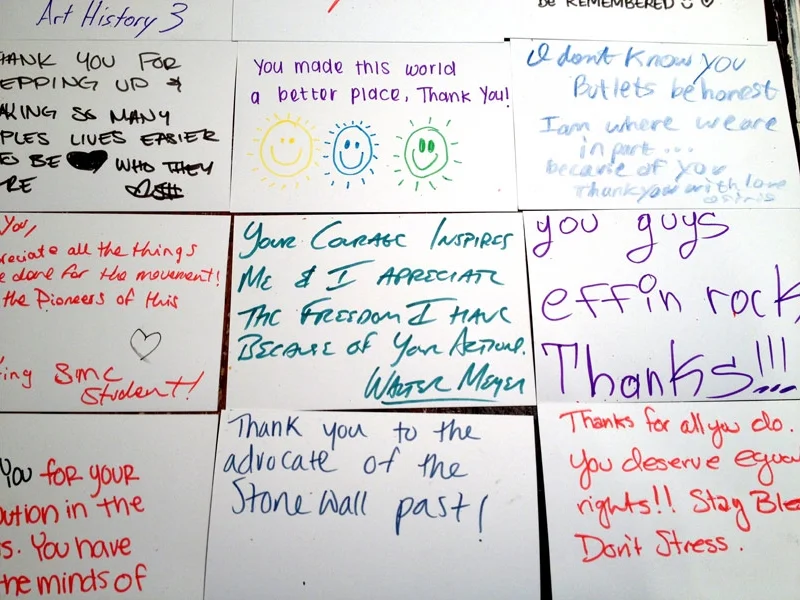 Art History 3
BE REMEMBERED
HANK YOU FOR
EPPING UP &
AKING SO MANY
PLES LIVES EASIER
BE WHO THEY
RE
You made this world
a better place, Thank You!
I dont Know you
But lets be honest
I am where we are
in part ...
because of you
Thank you with love
osiris
You,
reciate all the things
e done for the movement!
the Pioneers of this
ing SMC
Student!
YOUR COURAGE INSPIRES
ME & I APRECIATE
THE FREEDOM I HAVE
BECAUSE OF YOUR ACTIONS.
WALTER MEYER
you guys
effin rock,
Thanks!!!
You for your
ution in the
s. You have
he minds of
Thank you to the
advocate of the
Stone Wall past!
Thanks for all you do.
You deserve equa
rights!! Stay Ble
Don't Stress.